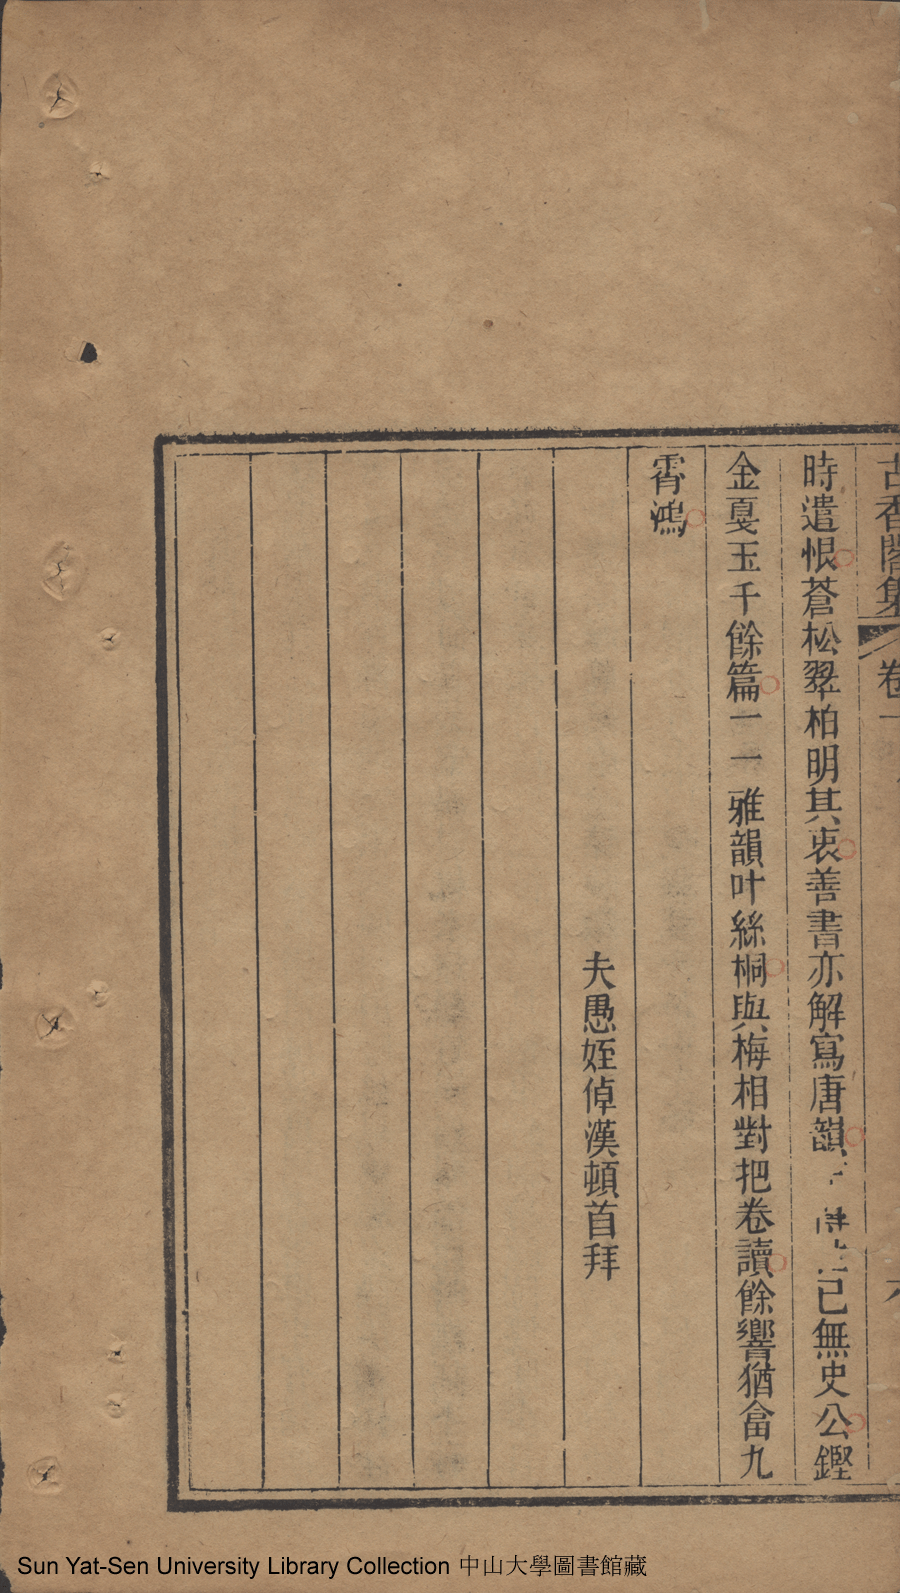 古香閣集 卷一
時遣恨蒼松翠柏明其衷善書亦解寫唐韻已無史公鏗
金戛玉千餘篇一一雅韻叶絲桐與梅相對把卷讀餘響猶畱九
霄鴻
夫愚姪倬漢頓首拜
Sun Yat-Sen University Library Collection 中山大學圖書館藏